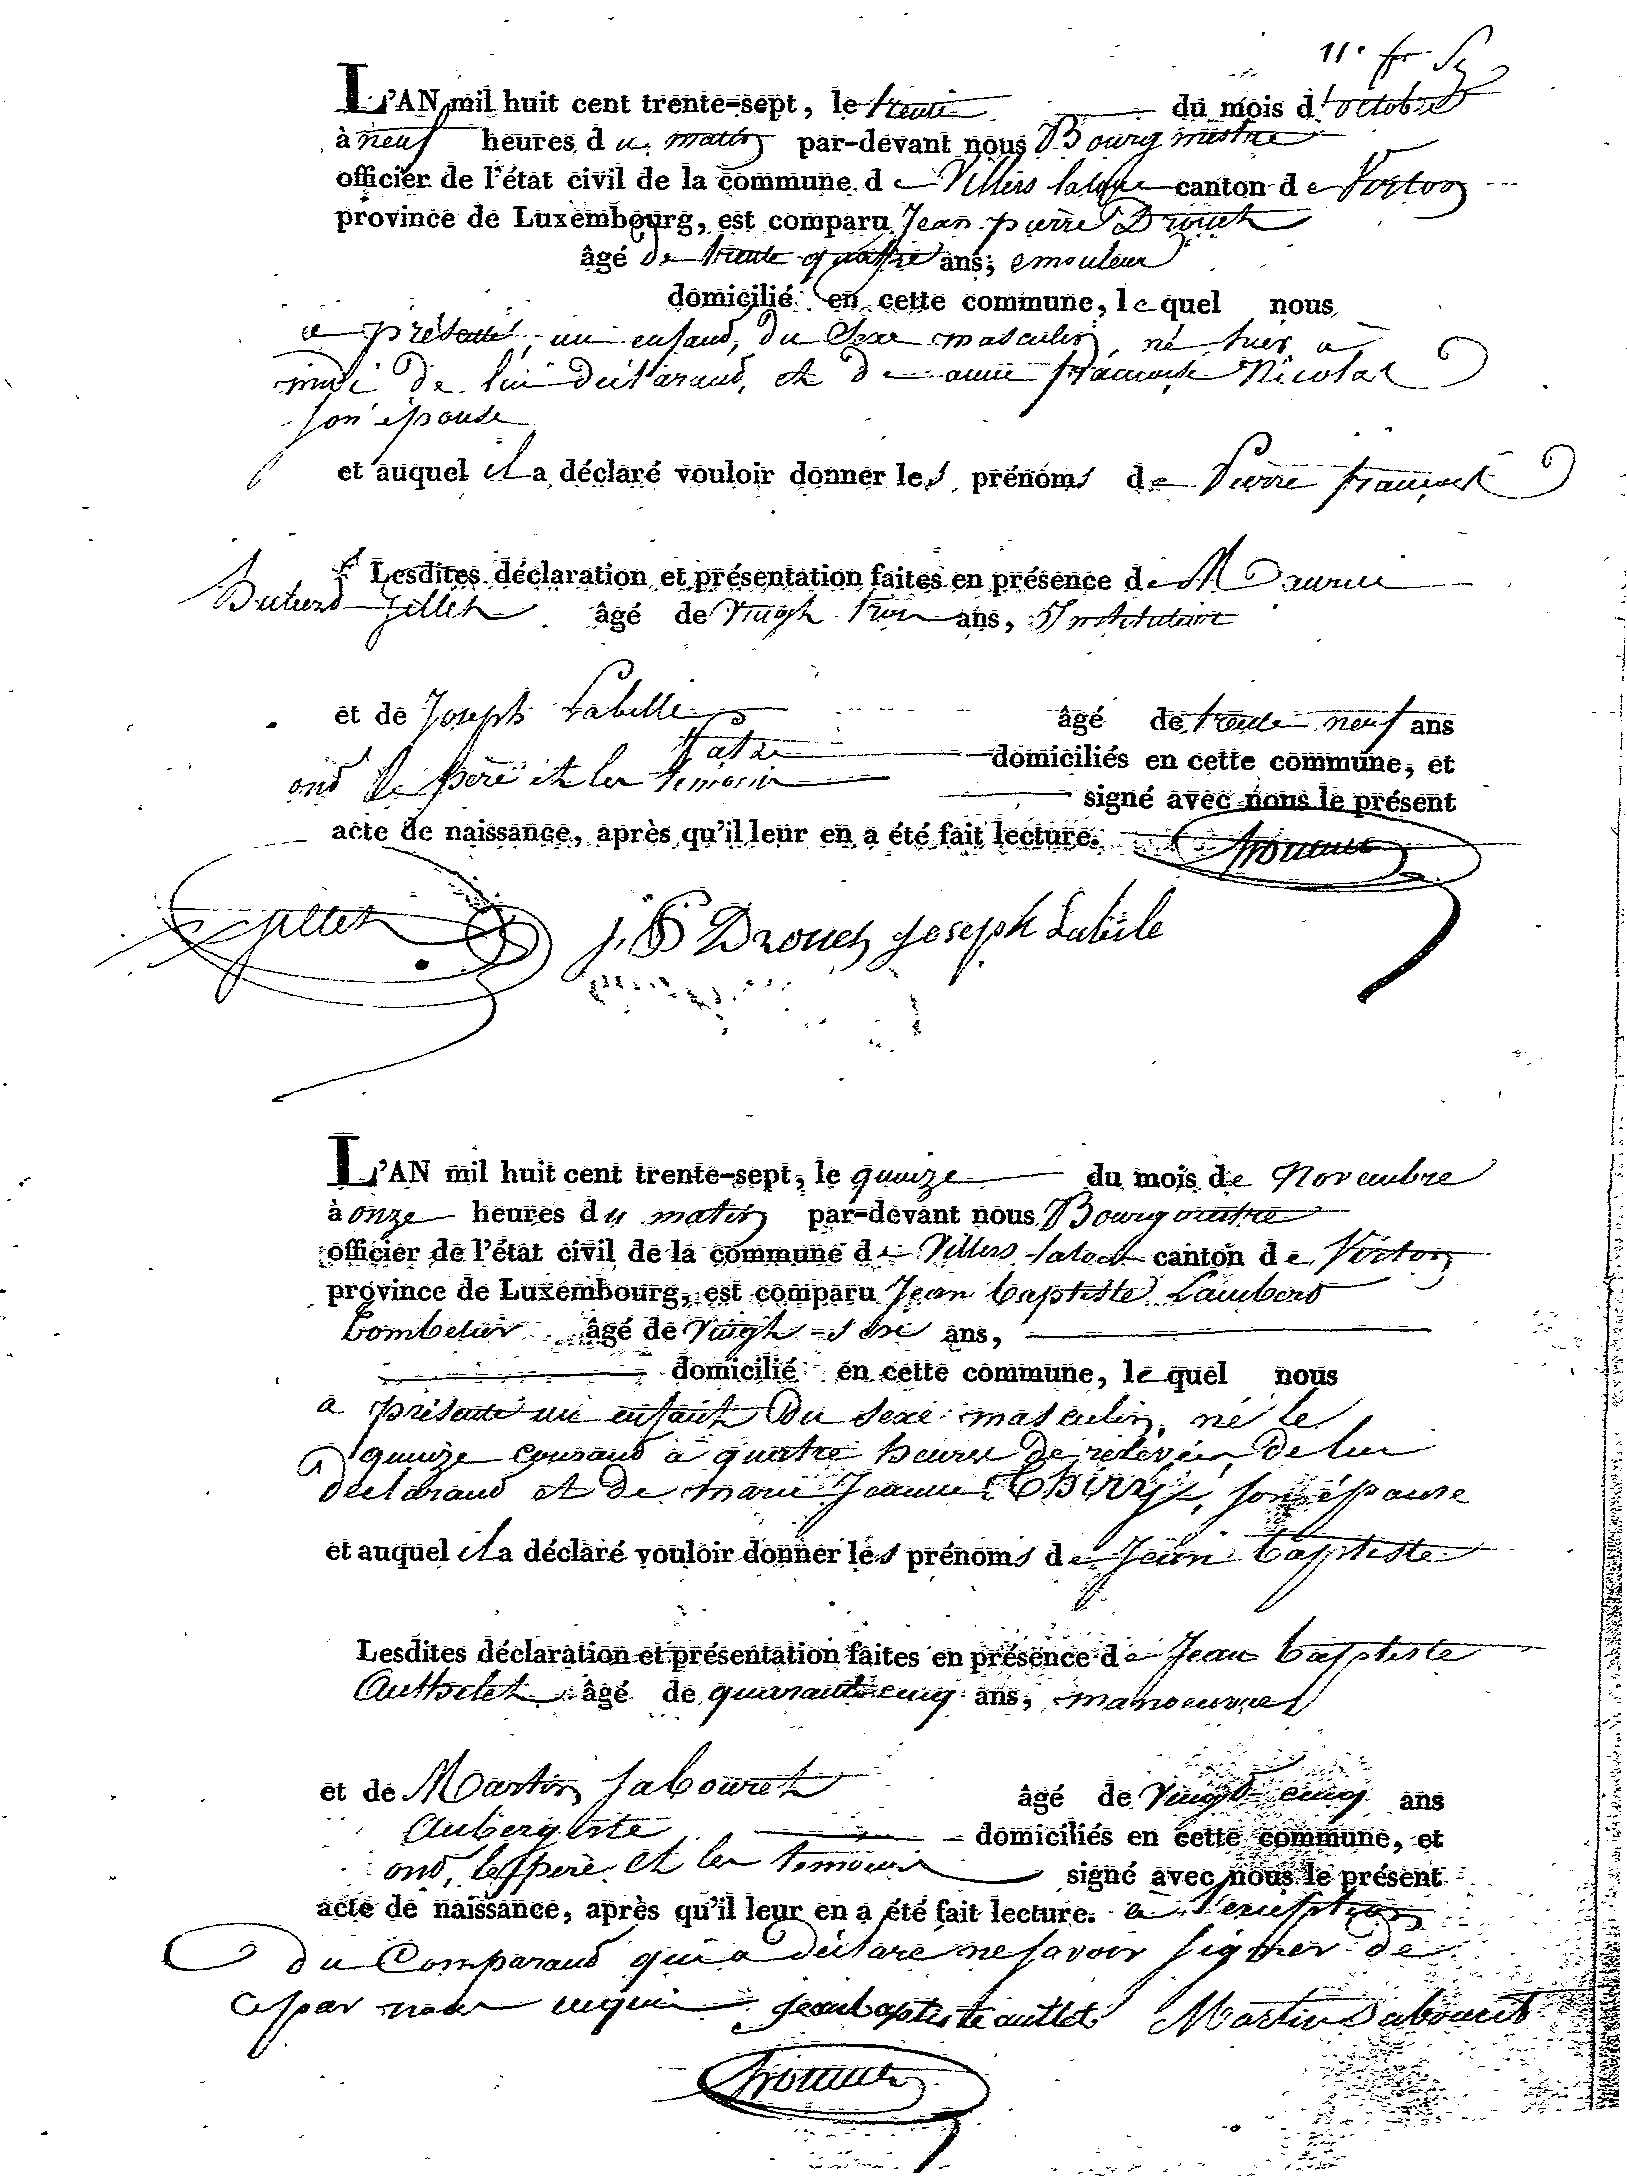 L'AN mil huit cent trente-sept, le trente du mois d'octobre
à neuf heures du matin par-devant nous Bourgmestre
officier de l'état civil de la commune de Villers latour canton de Virton
province de Luxembourg, est comparu Jean pierre Drouet
âgé de trente quatre ans, émouleur
domicilié en cette commune, lequel nous
a présenté un enfant, du sexe masculin, né hier à
midi de lui déclarant, et de anne françoise Nicolas
son épouse
et auquel il a déclaré vouloir donner les prénoms de Pierre françois
Lesdites déclaration et présentation faites en présence de Maurice
Gillet âgé de vingt trois ans, Instituteur
et de Joseph Labille âgé de trente neuf ans
domiciliés en cette commune, et
ont le père et les témoins signé avec nous le présent
acte de naissance, après qu'il leur en a été fait lecture.
Gillet J. P Drouet Joseph Labile
L'AN mil huit cent trente-sept, le quinze du mois de Novembre
à onze heures du matin par-devant nous Bourgmestre
officier de l'état civil de la commune de Villers canton de Virton
province de Luxembourg, est comparu Jean baptiste Lambert
âgé de vingt-six ans,
domicilié en cette commune, lequel nous
a présenté un enfant du sexe masculin, né le
quinze courant à quatre heures de relevée, de lui
déclarant et de marie Jeanne Thiry, son épouse
et auquel il a déclaré vouloir donner les prénoms de Jean baptiste
Lesdites déclaration et présentation faites en présence de Jean baptiste
Authelet âgé de quarante cinq ans, manoeuvre
et de Martin Sabouret âgé de vingt cinq ans
Aubergiste domiciliés en cette commune, et
ont, le père et les témoins signé avec nous le présent
acte de naissance, après qu'il leur en a été fait lecture. à l'exception
du Comparant qui a déclaré ne savoir signer de
ce par nous enquis Jean baptiste autlet Martin Sabouret